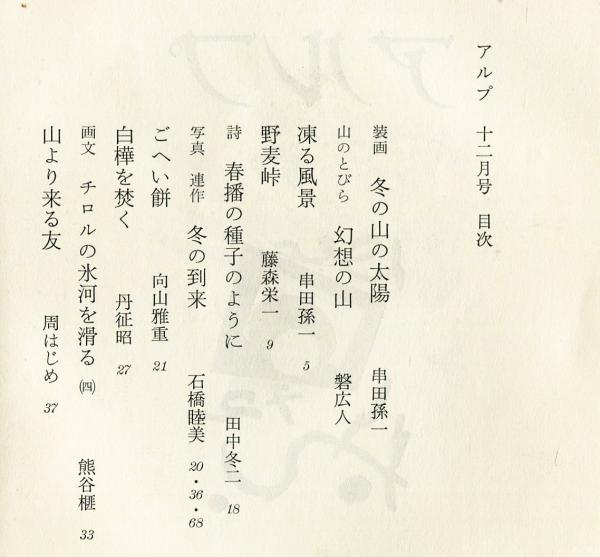 アルプ 十二月号 目次
装画 冬の山の太陽 串田孫一
山のとびら 幻想の山 磐広人
凍る風景 串田孫一 5
野麦峠 藤森栄一 9
詩 春播の種子のように 田中冬二 18
写真 連作 冬の到来 石橋睦美 20・36・68
ごへい餅 向山雅重 21
白樺を焚く 丹征昭 27
画文 チロルの氷河を滑る ㈣ 熊谷榧 33
山より来る友 周はじめ 37